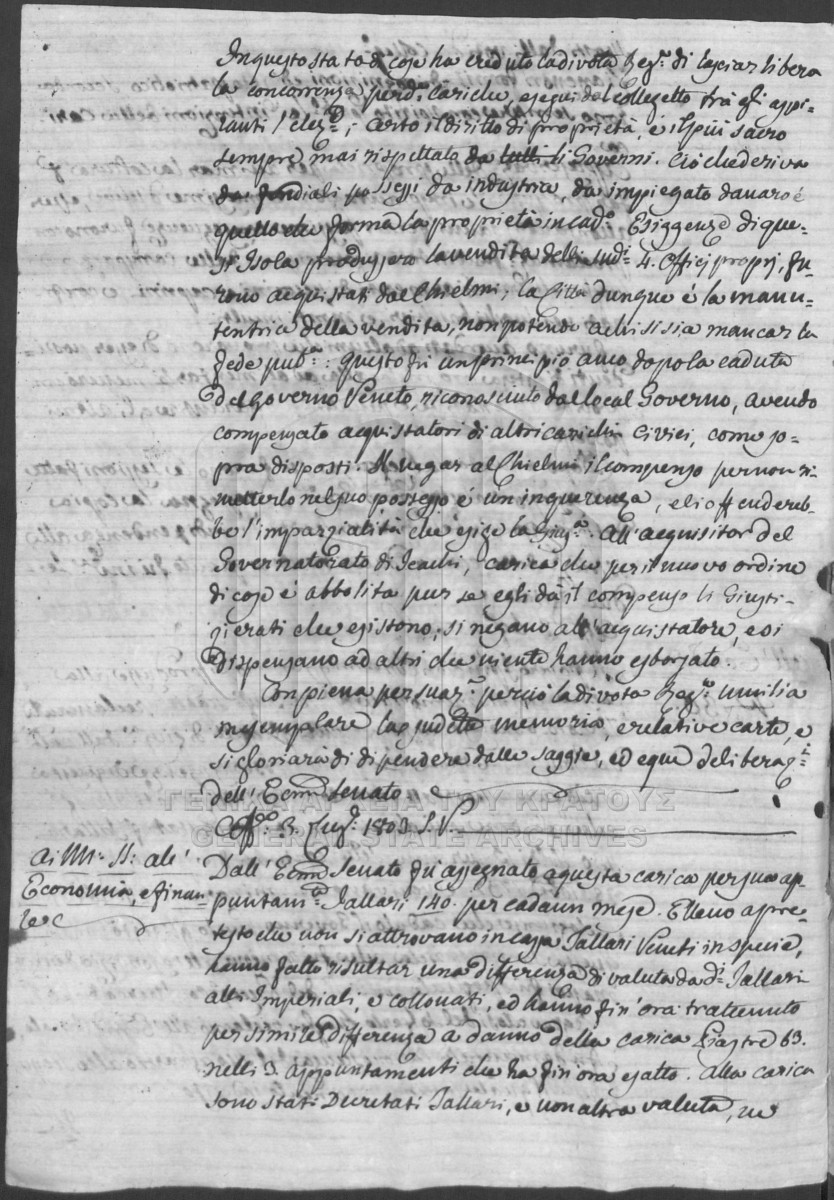 In questo stato di cose ha creduto la divota Regg.ª di lasciar libera
la concorrenza per d.e cariche, e segui dal Colleggetto trà gl' aspi-
ranti l' elez.e; Certo il diritto di proprietà, è il più sacro
sempre mai rispettato da tutti li Governi. Ciò che deriva
da fondiali possessi da industria, da impiegato danaro è
quello che forma la proprietà in cad.º Esiggenze di que-
st' Isola produssero la vendita delli sud.i 4. Officj proprj, fu-
rono acquistati dal Chielmi, la Città dunque è la manu-
tentrice della vendita, non potendo a chi si sia mancar la
fede pub.ª: questo fù un principio anco dopo la caduta
del Governo Veneto, riconosciuto dal local Governo, avendo
compensato acquistatori di altri carichi Civici, come so-
pra disposti. Il negar al Chielmi il compenso per non ri-
metterlo nel suo possesso è un inquerenza, e li offendereb-
be l'imparzialità che esige la Giu.ª. All' acquisitor del
Governatorato di carica che per il nuovo ordine
di cose è abbolita pur se egli dà il compenso li Giusti-
zierati che esistono, si negano all' acquistatore, e si
dispensano ad altri che niente hanno esborsato.
Con piena persuaz.e perciò la divota Regg.ª umilia
in esemplare la sudetta memoria, e relative carte, e
si gloriarà di dipendere dalle saggie, ed eque deliberaz.i
dell' Eccmo Senato
Corfù 3. Lug.º 1803. S. V.
Ai SS: alle
Economia, e finan-
ze
Dall' Eccmo Senato fù assegnato a questa carica per suo ap-
puntam.º Tallari 140. per cadaun mese. Elleno a pre-
testo che non si attrovano in cassa Tallari Veneti in specie,
hanno fatto risultar una differenza di valuta da d.i Tallari
alli Imperiali, e collonati, ed hanno fin' ora trattenuto
per simile differenza a danno della carica Piastre 63.
nelli 3. appuntamenti che ha fin' ora esatto. Alla carica
sono stati Decretati Tallari, e non altra valuta, ne
ΓΕΝΙΚΑ ΑΡΧΕΙΑ ΤΟΥ ΚΡΑΤΟΥΣ
GENERAL STATE ARCHIVES